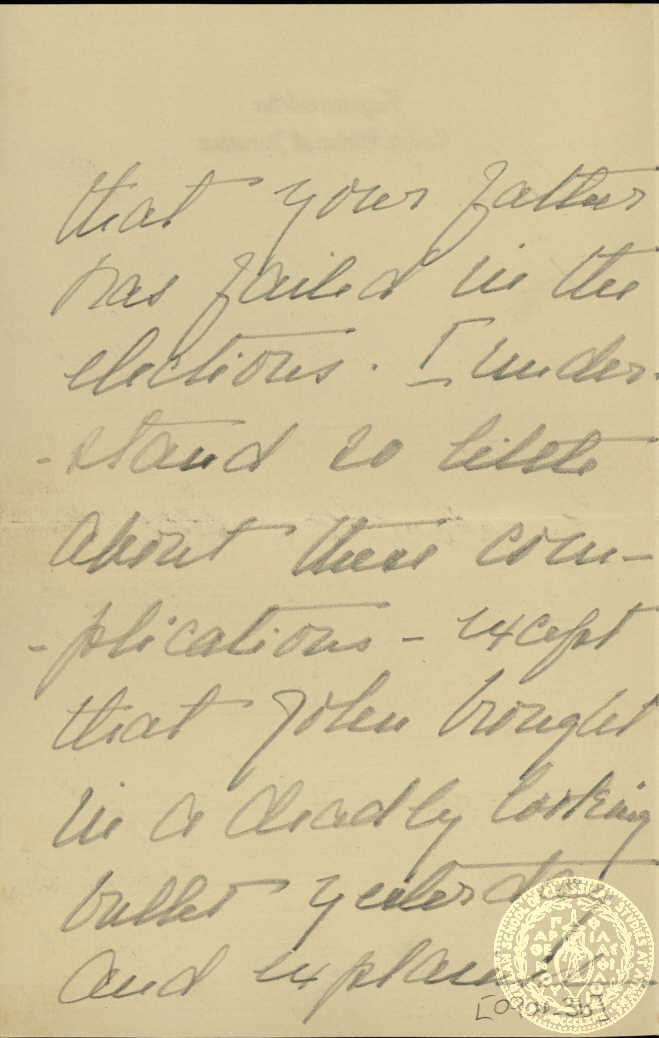 that your father
has failed in the
elections. I under-
-stand so little
about these com-
-plications - except
that John brought
in a deadly looking
bullet yesterday
and explained